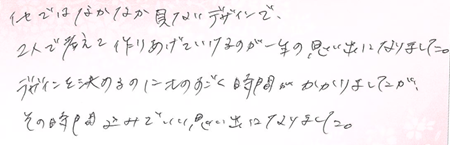 他ではなかなか見ないデザインで、
2人で考えて作りあげていけるのが一生の思い出になりました。
デザインを決めるのにものすごく時間がかかりましたが、
その時間込みでいい思い出になりました。